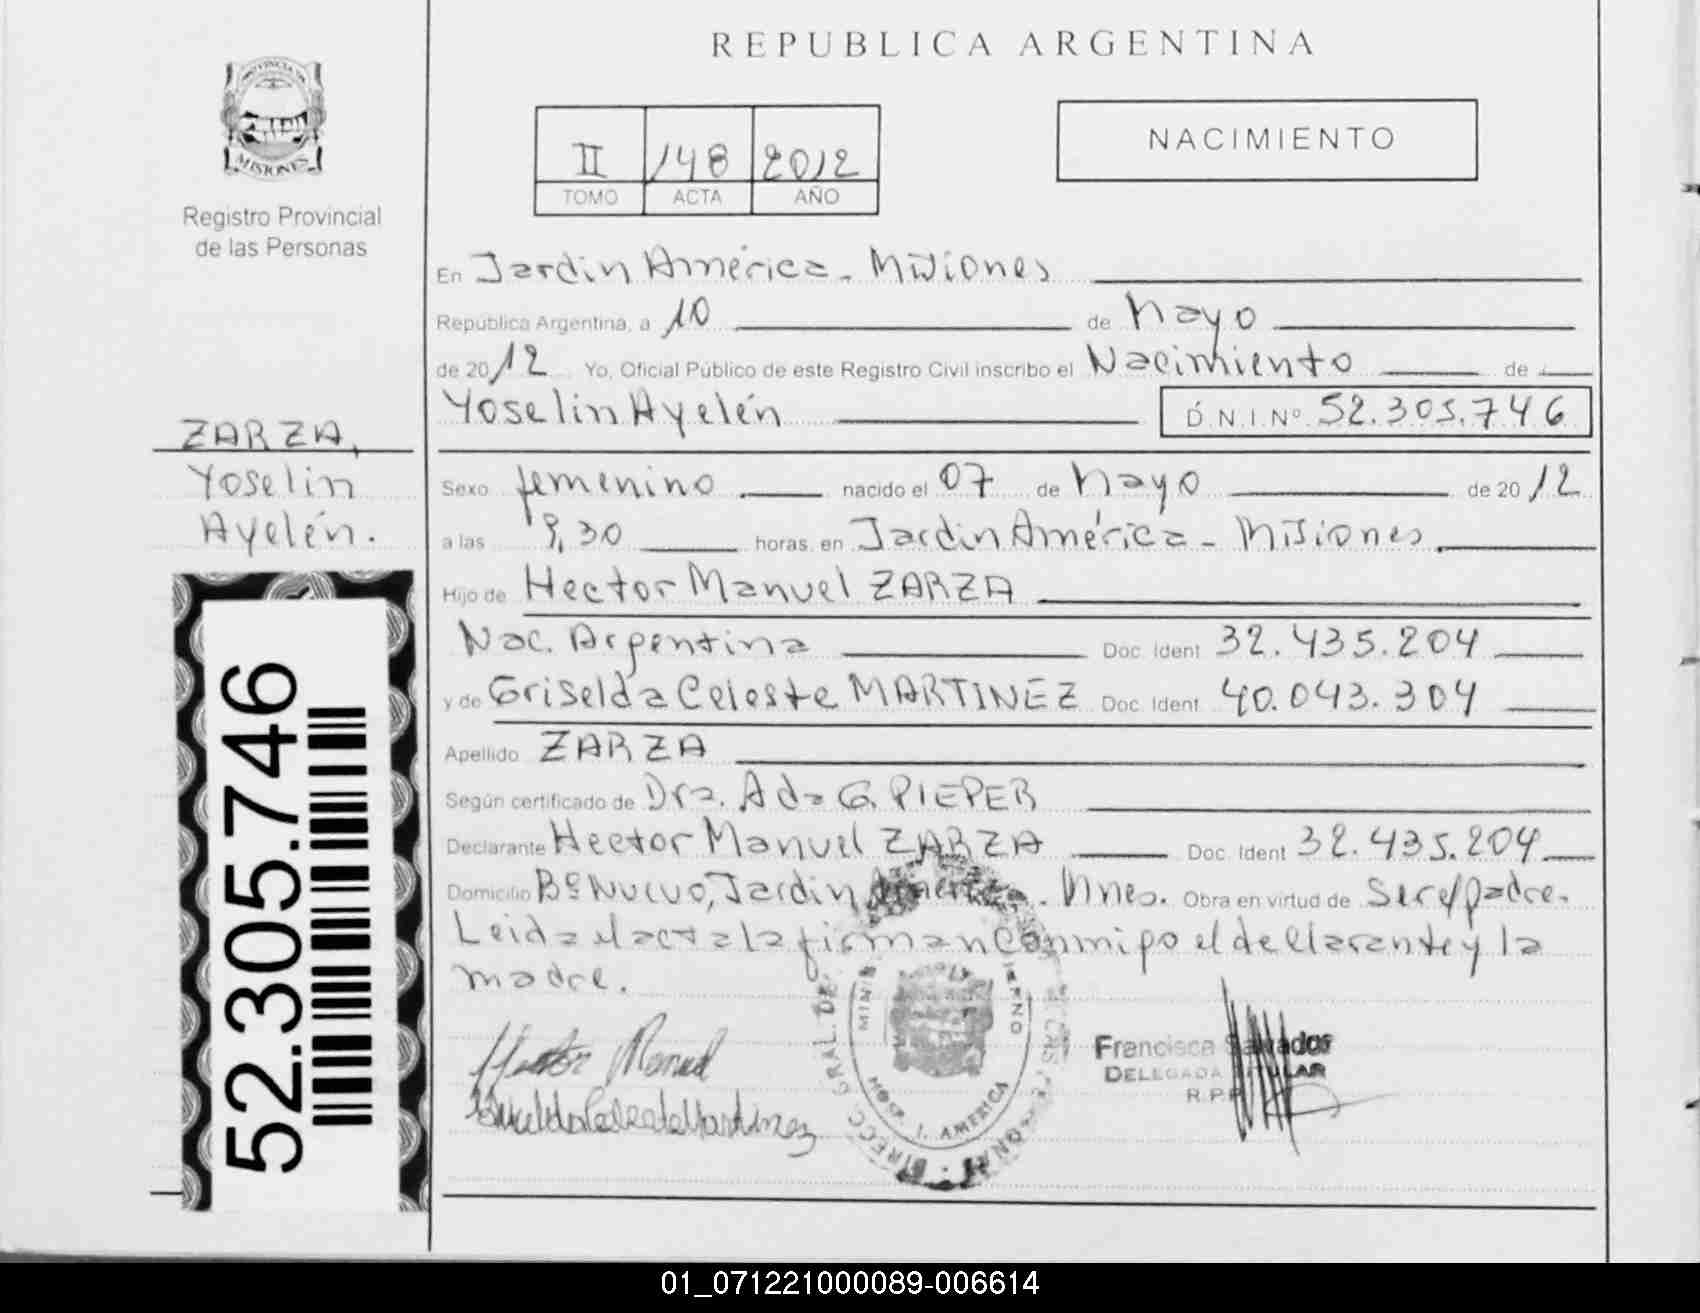 REPUBLICA ARGENTINA
PROVINCIA DE
MISIONES
Registro Provincial
de las Personas
II 148 2012
TOMO ACTA AÑO
NACIMIENTO
En Jardin América - Misiones
República Argentina, a 10 de Mayo
de 2012 Yo, Oficial Público de este Registro Civil inscribo el Nacimiento de
Yoselin Ayelén D.N.I. Nº 52.305.746
ZARZA,
Yoselin
Ayelén.
Sexo femenino nacido el 07 de Mayo de 2012
a las 9,30 horas, en Jardin América - Misiones.
Hijo de Hector Manuel ZARZA
Nac. Argentina Doc. Ident 32.435.204
y de Griselda Celeste MARTINEZ Doc. Ident 40.043.304
Apellido ZARZA
Según certificado de Dra. Ada G. PIEPER
Declarante Hector Manuel ZARZA Doc. Ident 32.435.204
Domicilio Bº Nuevo, Jardin América. Mnes. Obra en virtud de Ser el padre.
Leida el acta la firman conmigo el declarante y la
madre.
52.305.746
Hector Manuel
Martinez
DIRECC. GRAL. DE
HOSP. J. AMERICA
Francisca Salvador
DELEGADA TITULAR
R.P.P.
01_071221000089-006614